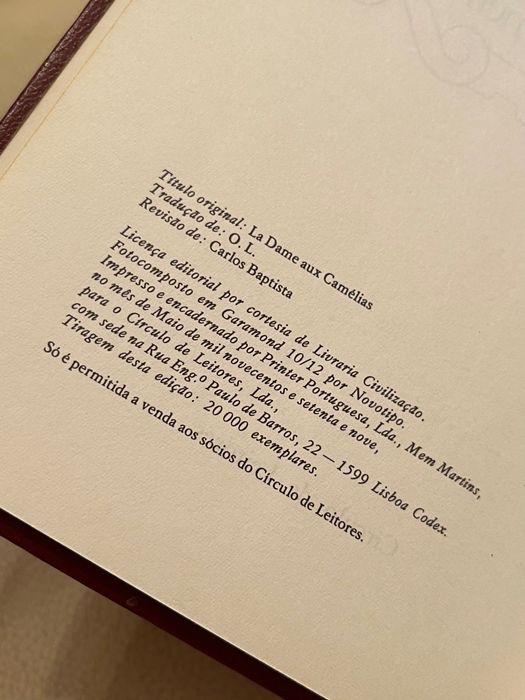 Título original: La Dame aux Camélias
Tradução de: O. L.
Revisão de: Carlos Baptista
Licença editorial por cortesia de Livraria Civilização.
Fotocomposto em Garamond 10/12 por Novotipo.
Impresso e encadernado por Printer Portuguesa, Lda., Mem Martins,
no mês de Maio de mil novecentos e setenta e nove,
para o Círculo de Leitores, Lda.,
com sede na Rua Eng.º Paulo de Barros, 22 — 1599 Lisboa Codex.
Tiragem desta edição: 20 000 exemplares.
Só é permitida a venda aos sócios do Círculo de Leitores.